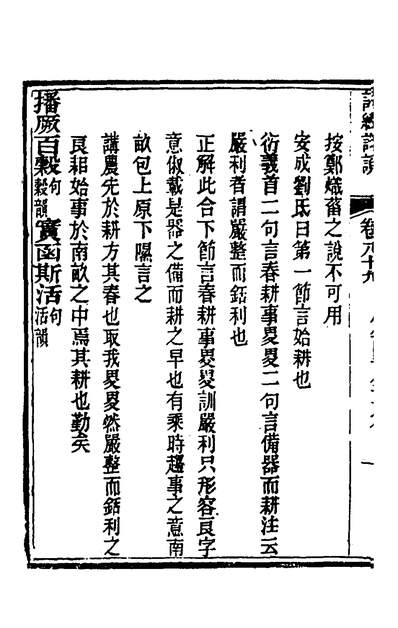 詩經詮義 卷八十九
按鄭熾菑之說不可用
安成劉氏曰第一節言始耕也
衍義首二句言春耕事畟畟二句言備器而耕注云
嚴利者謂嚴整而銛利也
正解此合下節言春耕事畟畟訓嚴利只形容良字
意俶載是器之備而耕之早也有乘時趨事之意南
畝包上原下隰言之
講農先於耕方其春也取我畟畟然嚴整而銛利之
良耜始事於南畝之中焉其耕也勤矣
播厥百穀句穀韻實函斯活句活韻